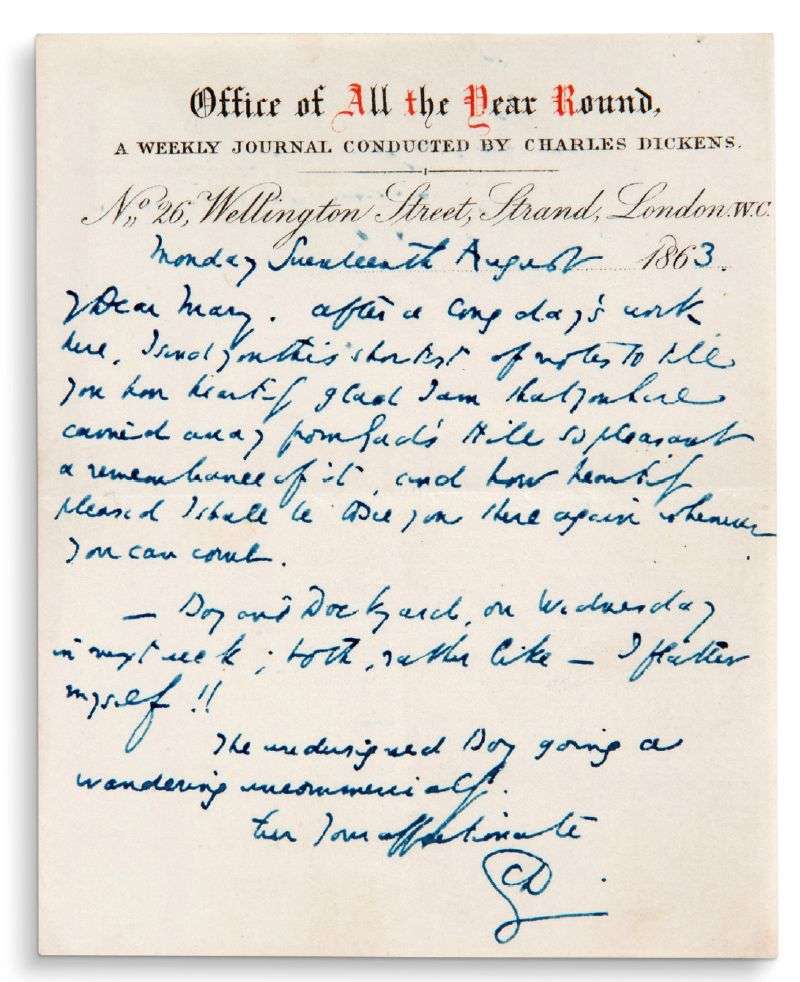 Office of All the Year Round,
A WEEKLY JOURNAL CONDUCTED BY CHARLES DICKENS.
No. 26, Wellington Street, Strand, London. W.C.
Monday Seventeenth August 1863.
My Dear Mary. After a long day's work
here, I send you this shortest of notes to tell
you how heartily glad I am that you have
carried away from Gad's Hill so pleasant
a remembrance of it, and how heartily
pleased I shall be to see you there again whenever
you can come.
— Boy and Dockyard, on Wednesday
in next week; both, rather like — I flatter
myself!!
The undersigned Boy going a
wandering uncommercially.
Ever Your affectionate
CD